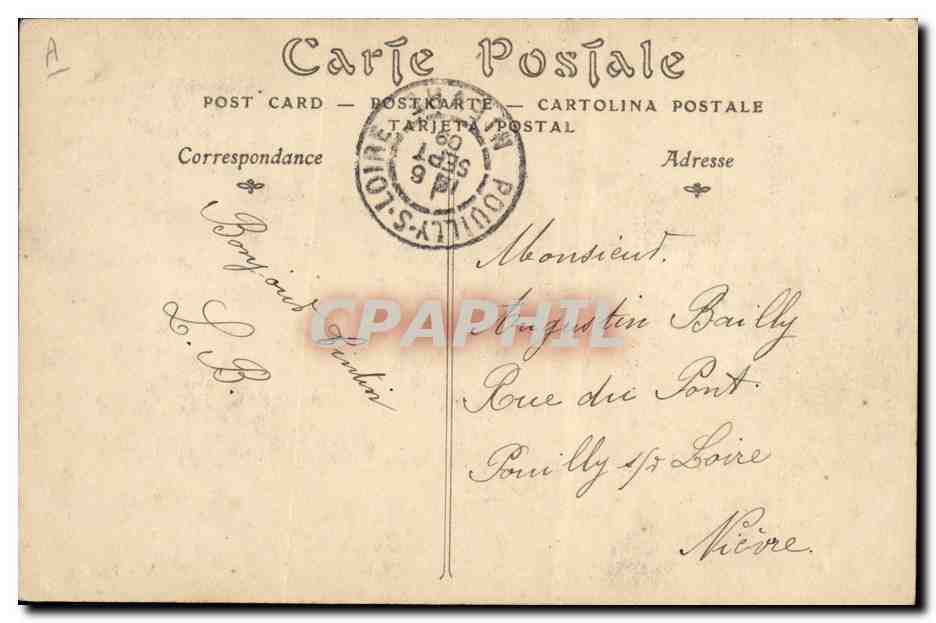 A
Carte Postale
POST CARD — POSTKARTE — CARTOLINA POSTALE
TARJETA POSTAL
Correspondance
Adresse
POUILLY-S-LOIRE
6
SEPT
09
Bonjour Tintin
L. B.
Monsieur.
Augustin Bailly
Rue du Pont.
Pouilly s/r Loire
Nièvre.
CPAPHIL